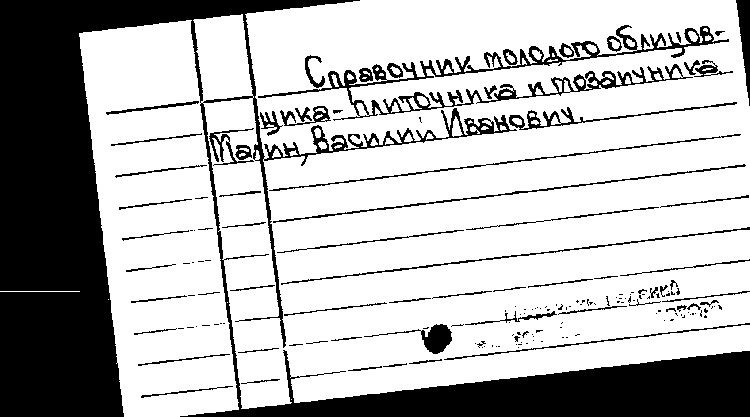 Справочник молодого облицов-
щика-плиточника и мозаичника.
Малин, Василий Иванович.